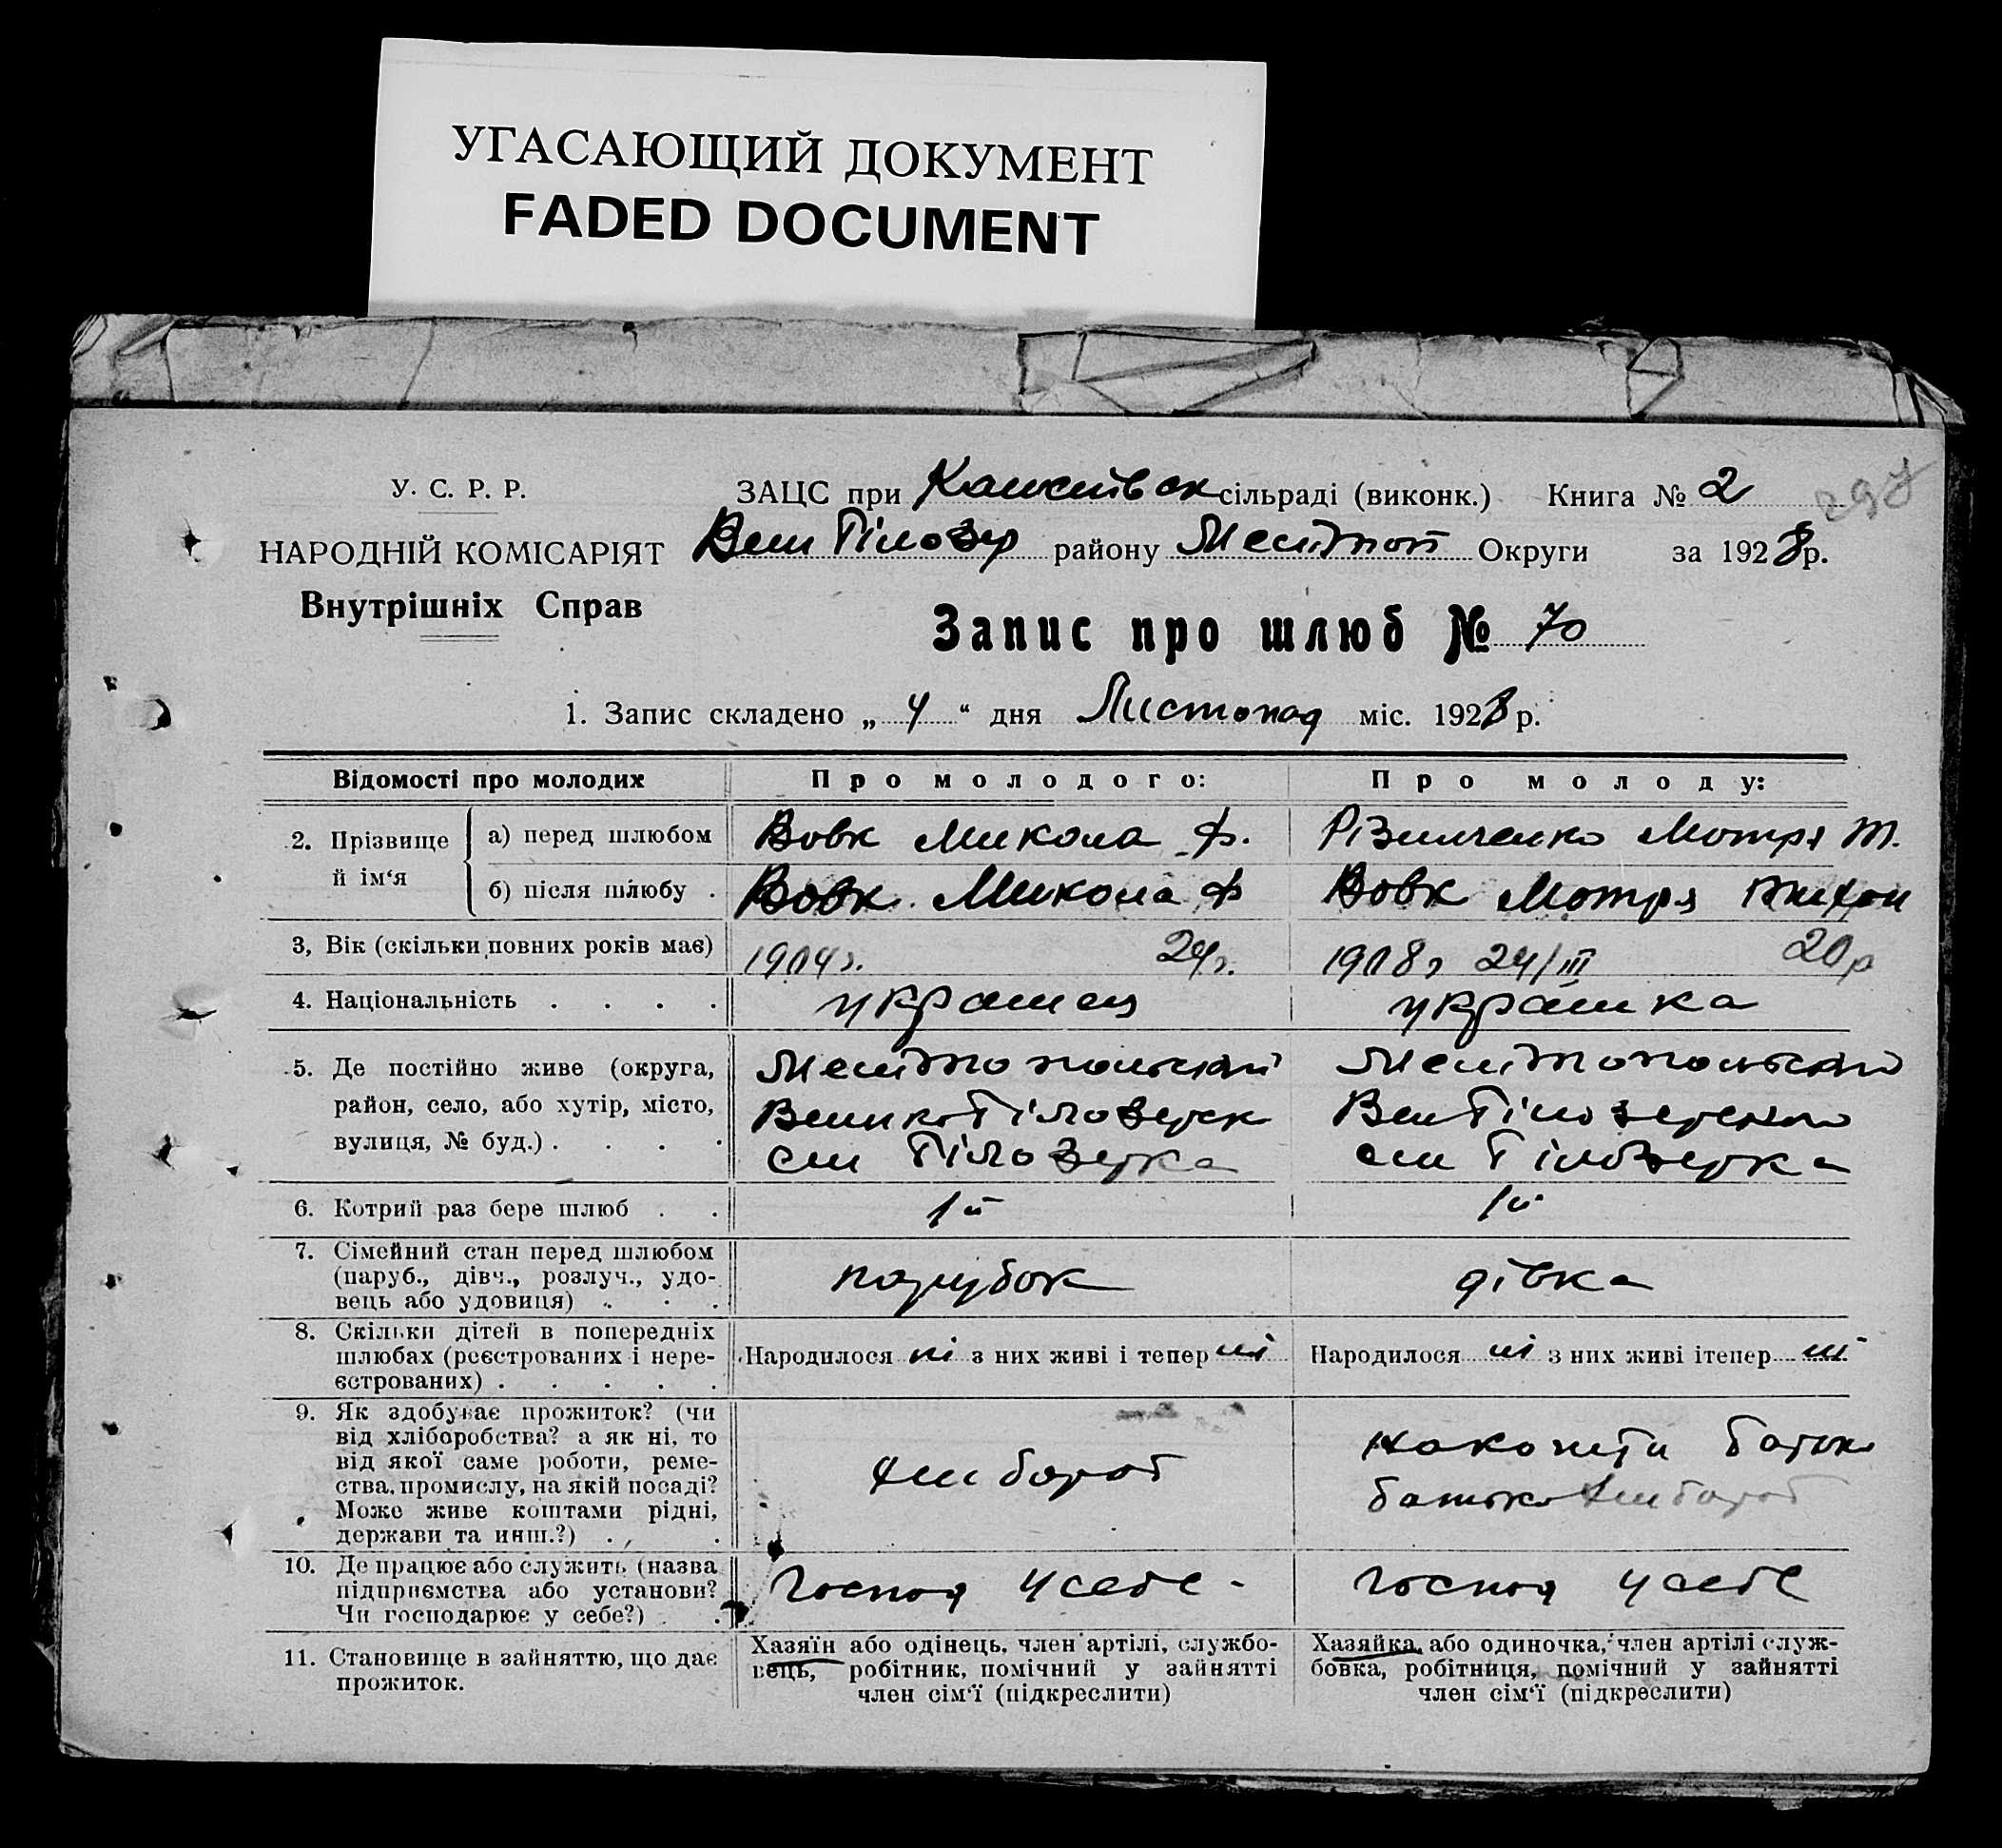 УГАСАЮЩИЙ ДОКУМЕНТ
FADED DOCUMENT
У. С. Р. Р.
ЗАЦС при сільраді (виконк.) Книга № 2
НАРОДНІЙ КОМІСАРІЯТ
району Мелітоп Округи за 1928 р.
Внутрішніх Справ
Запис про шлюб № 70
1. Запис складено „ 4 “ дня Листопад міс. 1928 р.
Відомості про молодих
Про молодого:
Про молоду:
2. Прізвище й ім‘я
а) перед шлюбом
Вовк Микола Ф.
Мотря Т.
б) після шлюбу .
Вовк Микола Ф
Вовк Мотря Тихон
3, Вік (скільки повних років має)
1904 г. 24 г.
1908 г 24/III 20 р
4. Національність . . . .
украинец
украинка
5. Де постійно живе (округа,
район, село, або хутір, місто,
вулиця, № буд.) . . . .
Білозерка
Білозерка
6. Котрий раз бере шлюб . .
1й
1й
7. Сімейний стан перед шлюбом
(паруб., дівч., розлуч., удо-
вець або удовиця) . . .
парубок
дівка
8. Скільки дітей в попередніх
шлюбах (реєстрованих і нере-
єстрованих) . . . . .
Народилося ні з них живі і тепер ні
Народилося ні з них живі ітепер ні
9. Як здобуває прожиток? (чи
від хліборобства? а як ні, то
від якої саме роботи, реме-
ства, промислу, на якій посаді?
Може живе коштами рідні,
держави та инш.?) . , .
хлибороб
батько хлибороб
10. Де працює або служить (назва
підприємства або установи?
Чи господарює у себе?) .
господ у себе -
господ у себе
11. Становище в зайняттю, що дає
прожиток.
Хазяїн або одінець, член артілі, службо-
вець, робітник, помічний у зайнятті
член сім‘ї (підкреслити)
Хазяйка, або одиночка, член артілі служ-
бовка, робітниця, помічний у зайнятті
член сім‘ї (підкреслити)